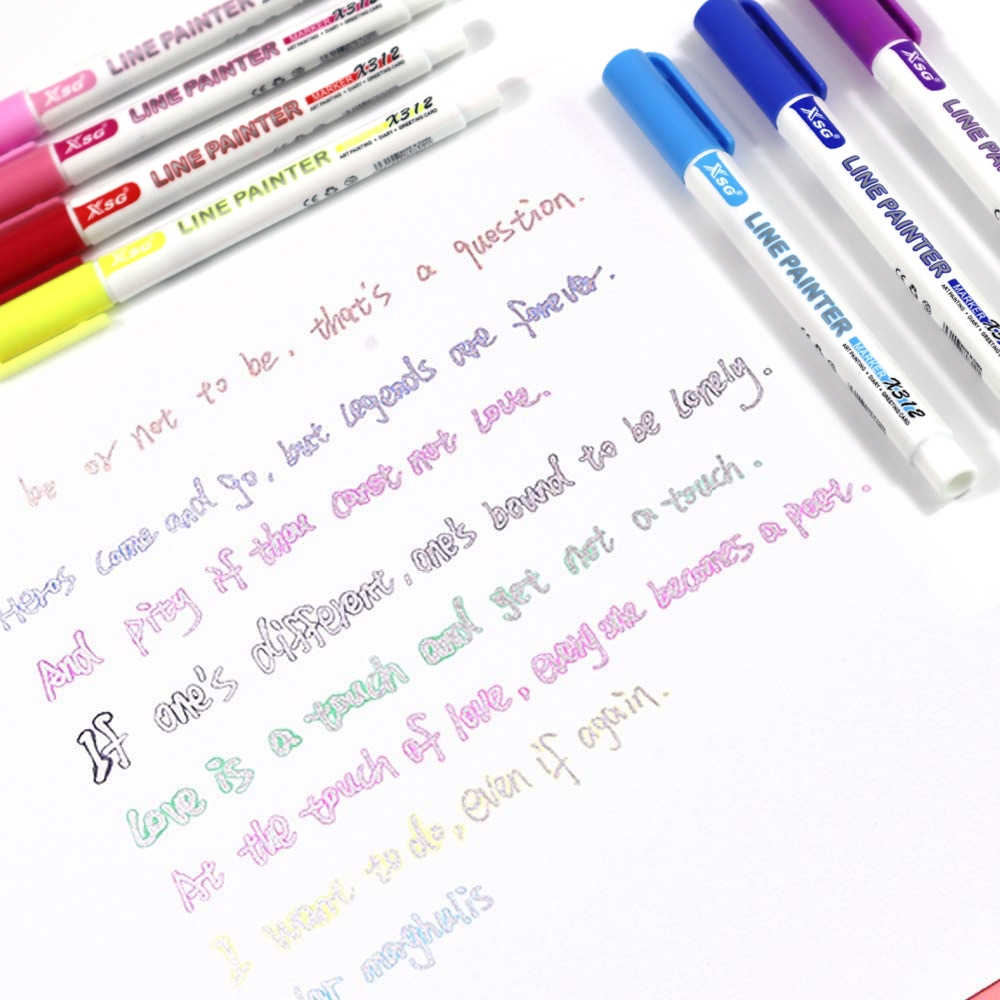 LINE PAINTER
XSG LINE PAINTER MARKER X312
ART PAINTING • DIARY • GREETING CARD
XSG LINE PAINTER MARKER X312
ART PAINTING • DIARY • GREETING CARD
XSG LINE PAINTER X312
ART PAINTING • DIARY • GREETING CARD
XSG LINE PAINTER MARKER X312
ART PAINTING • DIARY • GREETING CARD
XSG LINE PAINTER MARKER
ART PAINTING • DIARY • GREETING CARD
XSG LINE PA
be or not to be. that's a question.
Heros come and go, but legends are forever.
And pity if thou canst not love.
If one's different, one's bound to be lonely.
Love is a touch and yet not a touch.
At the touch of love, everyone becomes a poet.
I want to do, even if again.
maghulis